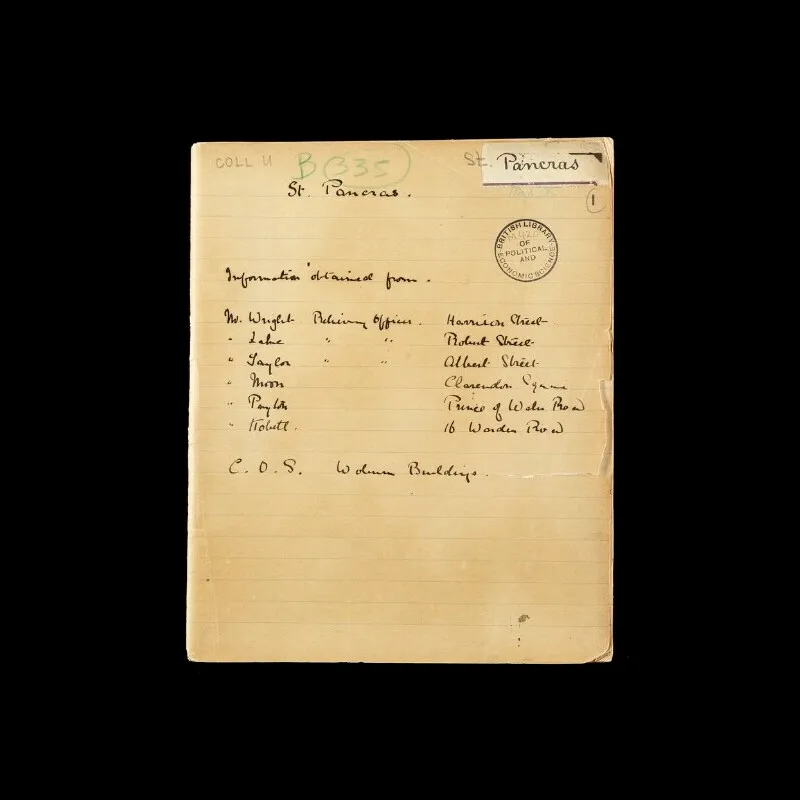 COLL U B (335) St. Pancras
St. Pancras.
1
BRITISH LIBRARY
OF
POLITICAL
AND
ECONOMIC SCIENCE
Information obtained from.
Mr. Wright Relieving Officer. Harrison Street
" Lake " " Robert Street
" Taylor " " Albert Street
" Moon Clarendon Square
" Paylor Prince of Wales Road
" 16 Warden Road
C. O. S. Woburn Buildings.